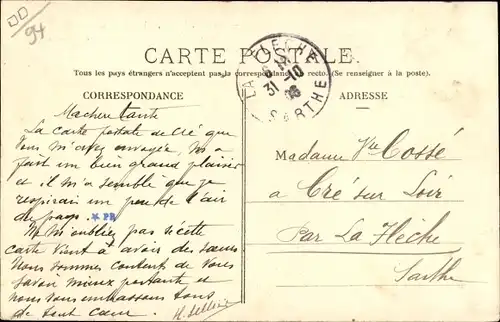 94
CARTE POSTALE
LA FLECHE
31-10
SARTHE
Tous les pays étrangers n'acceptent pas la correspondance au recto. (Se renseigner à la poste).
CORRESPONDANCE
ADRESSE
Ma chere tante
La carte postale de Cré que
vous m'avez envoyée m'a
fait un bien grand plaisir
et il m'a semblé que je
respirais un peu de l'air
du pays.
PR
cette
carte vient à avoir des sœurs
Nous sommes contents de vous
savoir mieux portante et
nous vous embrassons tous
de tout cœur.
Madame Vve Cossé
a Cré sur Loir
Par La Flèche
Sarthe